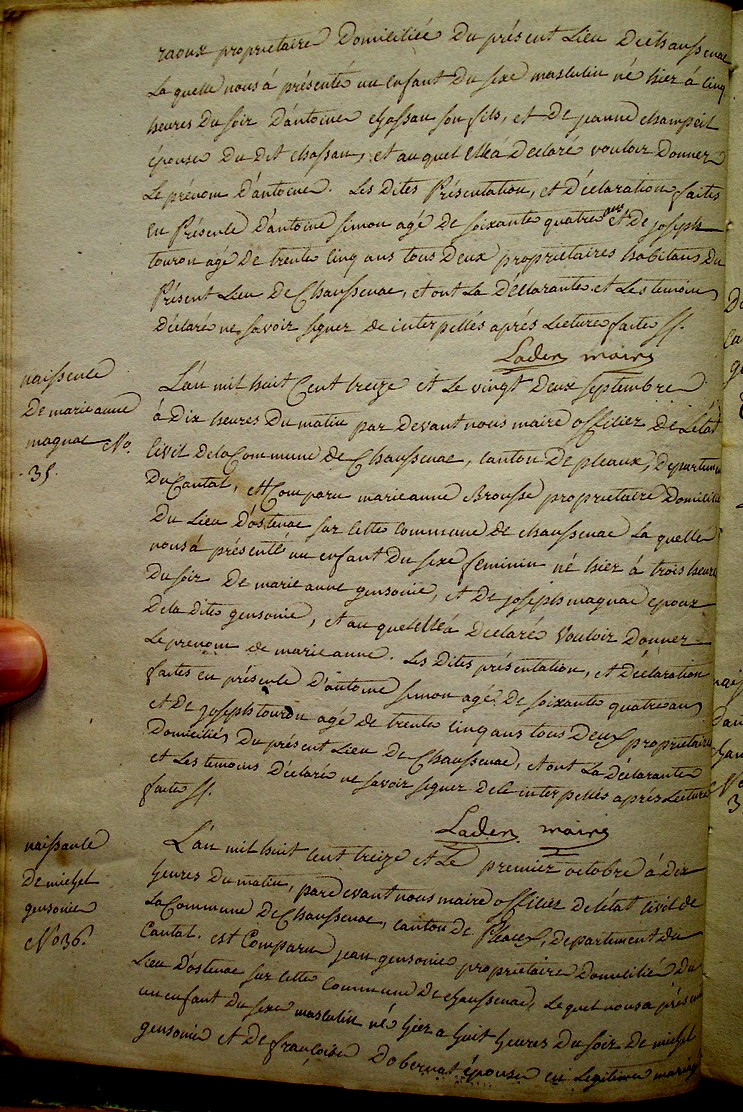 raoux proprietaire Domiciliée Du présent Lieu De chaussenac
La quelle nous à présenté un enfant Du sexe masculin né hier à cinq
heures Du soir D'antoine chassan son fils, et De jeanne champeil
épouse Du Dit chassan, et au quel Elle à Declaré vouloir Donner
Le prénom D'antoine. Les Dites Présentation, et Déclaration faites
En Présence D'antoine simon agé De soixante quatre ans et De joseph
touron agé De trente cinq ans tous Deux proprietaires habitans Du
Présent Lieu De Chaussenac, et ont La Déclarante et Les temoins
Déclaré ne savoir signer de ce interpellés après Lecture faite ff.
Laden maire
naissence
De marie anne
magnac No.
35.
L'an mil huit Cent treize et Le vingt Deux septembre
à Dix heures Du matin par Devant nous maire officier De L'état
Civil De la Commune De Chaussenac, canton De pleaux, Departement
Du Cantal, est Comparu marie anne Brousse proprietaire Domiciliée
Du Lieu D'ostenac sur cette commune De chaussenac La quelle
nous à présenté un enfant Du sexe feminin né hier à trois heures
Du soir De marie anne gensonie, et De joseph magnac epoux
De la dite gensonie, et au quel Elle à Declaré vouloir Donner
Le prenom de marie anne. Les Dites présentation, et Déclaration
faites en présence D'antoine simon agé De soixante quatre ans
et De joseph touron agé De trente cinq ans tous Deux proprietaires
Domiciliés Du présent Lieu De Chaussenac, et ont La Déclarante
et Les temoins Déclaré ne savoir signer De ce interpellés après Lecture
faite ff.
Laden maire
naissance
De michel
gensonie
No 36.
L'an mil huit cent treize et Le premier octobre à Dix
heures Du matin, par Devant nous maire officier De l'état Civil de
La Commune De Chaussenac, canton De Pleaux, Departement Du
Cantal. est Comparu jean gensonie proprietaire Domicilié Du
Lieu D'ostenac sur cette commune De chaussenac, Le quel nous à présenté
un enfant Du sexe masculin né hier a huit heures Du soir De michel
gensonie et De françoise Dobernat épouse en Legitime mariage